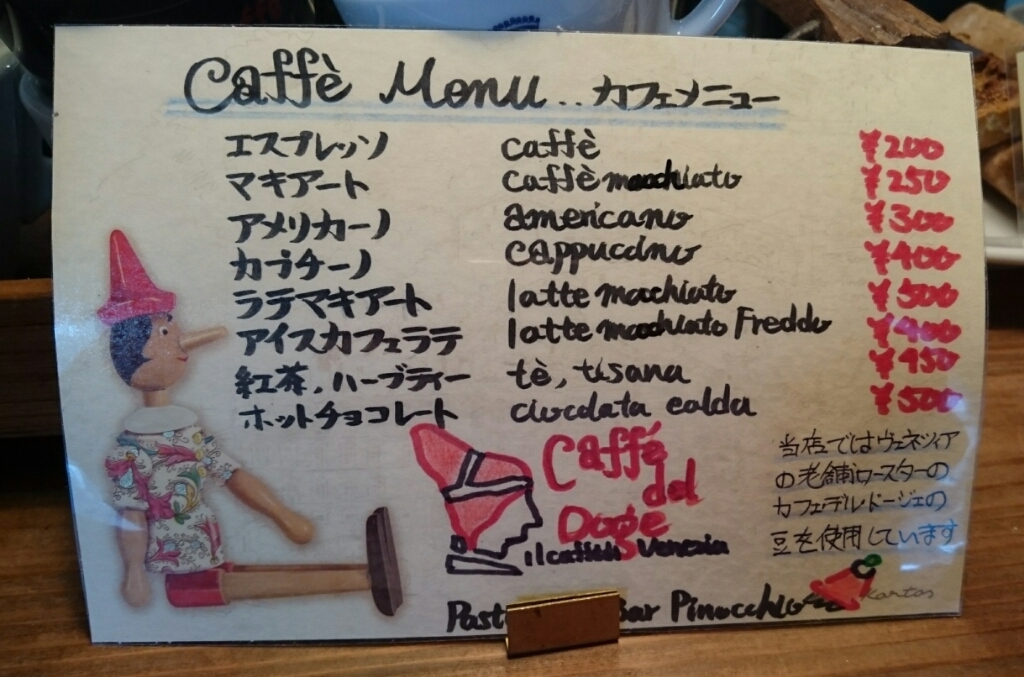 Caffè Menu.. カフェメニュー
エスプレッソ caffè ¥200
マキアート caffè macchiato ¥250
アメリカーノ americano ¥300
カプチーノ cappuccino ¥400
ラテマキアート latte macchiato ¥500
アイスカフェラテ latte macchiato Freddo ¥400
紅茶,ハーブティー tè, tisana ¥450
ホットチョコレート cioccolata calda ¥500
Caffè
del
Doge
Venezia
当店ではヴェネツィア
の老舗ロースターの
カフェ・デル・ドージェの
豆を使用しています
Past Bar Pinocchio